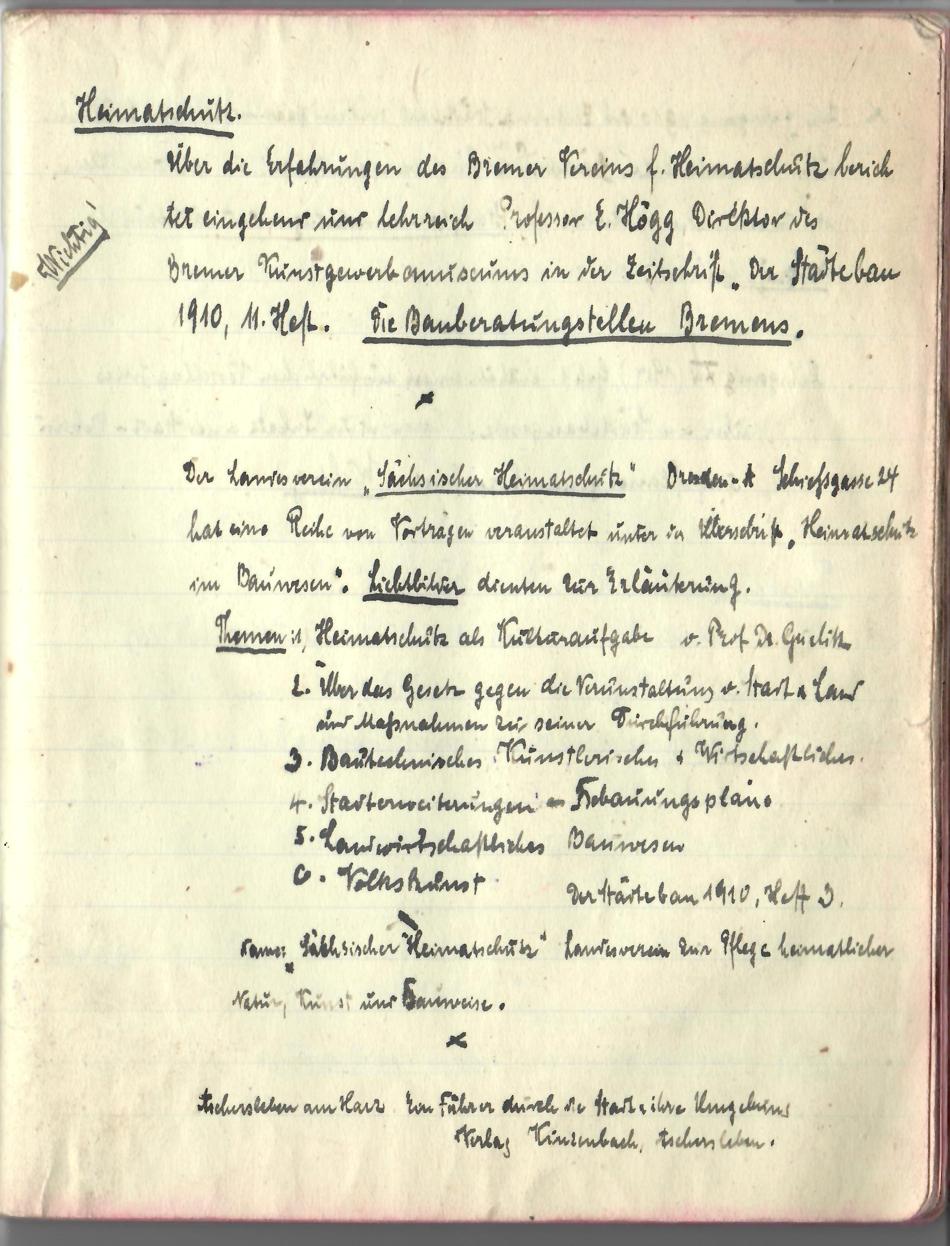 Heimatschutz.
Über die Erfahrungen des Bremer Vereins f. Heimatschutz berich
tet eingehend und lehrreich Professor E. Högg Direktor des
Wichtig!
Bremer Kunstgewerbemuseums in der Zeitschrift „Der Städtebau
1910, 11. Heft. Die Bauberatungstellen Bremens.
Der Landesverein „Sächsischer Heimatschutz" Dresden-A Schießgasse 24
hat eine Reihe von Vorträgen veranstaltet unter der Überschrift „Heimatschutz
im Bauwesen". Lichtbilder dienten zur Erläuterung.
Themen: 1, Heimatschutz als Kulturaufgabe v. Prof. Dr. Gurlitt
2. Über das Gesetz gegen die Verunstaltung v. Stadt u Land
und Maßnahmen zu seiner Durchführung.
3. Bautechnisches Künstlerisches & Wirtschaftliches.
4. Stadterweiterungen - Bebauungspläne
5. Landwirtschaftliches Bauwesen
6. Volkskunst
Der Städtebau 1910, Heft 3.
Name: „Sächsischer Heimatschutz" Landesverein zur Pflege heimatlicher
Natur, Kunst und Bauweise.
Aschersleben am Harz Ein Führer durch die Stadt & ihre Umgebung
Verlag Aschersleben.